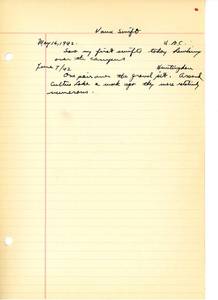 Vaux Swift
May 14, 1942. U.B.C.
Saw my first swifts today
over the campus
June 7/42 Huntingdon
One pair over the gravel pit. Around
Cultus Lake a week ago they were relatively
numerous.